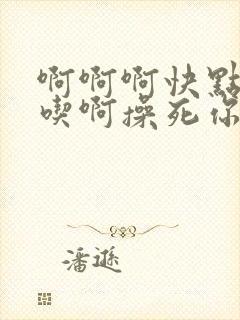 啊啊啊快點
喫啊操死你
潘遜